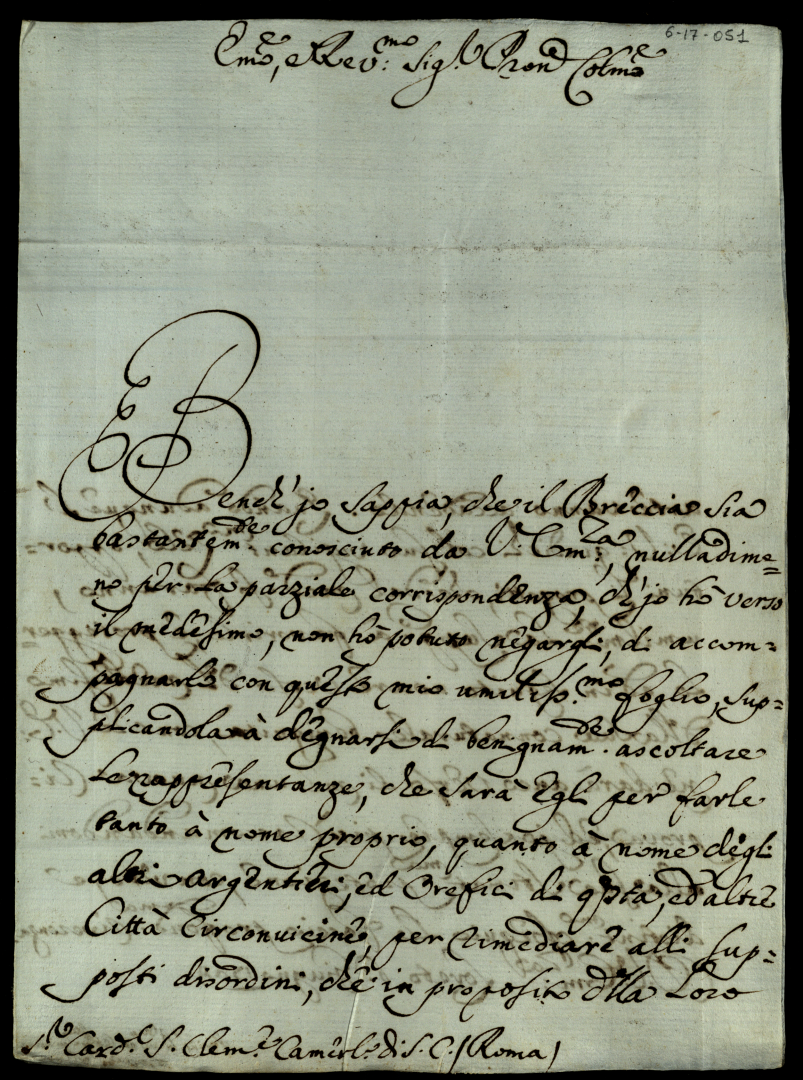 6-17-051
Em:e, e Rev:mo Sig.r Pron Colmo
Bench' jo sappia, che il Breccia sia
bastantem.te conosciuto da V. Em:za, nulladime=
no per la parziale corrispondenza, ch' jo hò verso
il medesimo, non hò potuto negargli, di accom=
pagnarlo con questo mio umiliss.mo foglio, sup=
plicandola à degnarsi di benignam.te ascoltare
le rappresentanze, che sarà egli per farle
tanto à nome proprio, quanto à nome degli
altri argentieri, ed Orefici di qsta, ed altre
Città circonvicine, per rimediare alli sup=
posti disordini, che in proposito della loro
S.r Card.l S. Clem.te Camerl.o di S. C. (Roma)